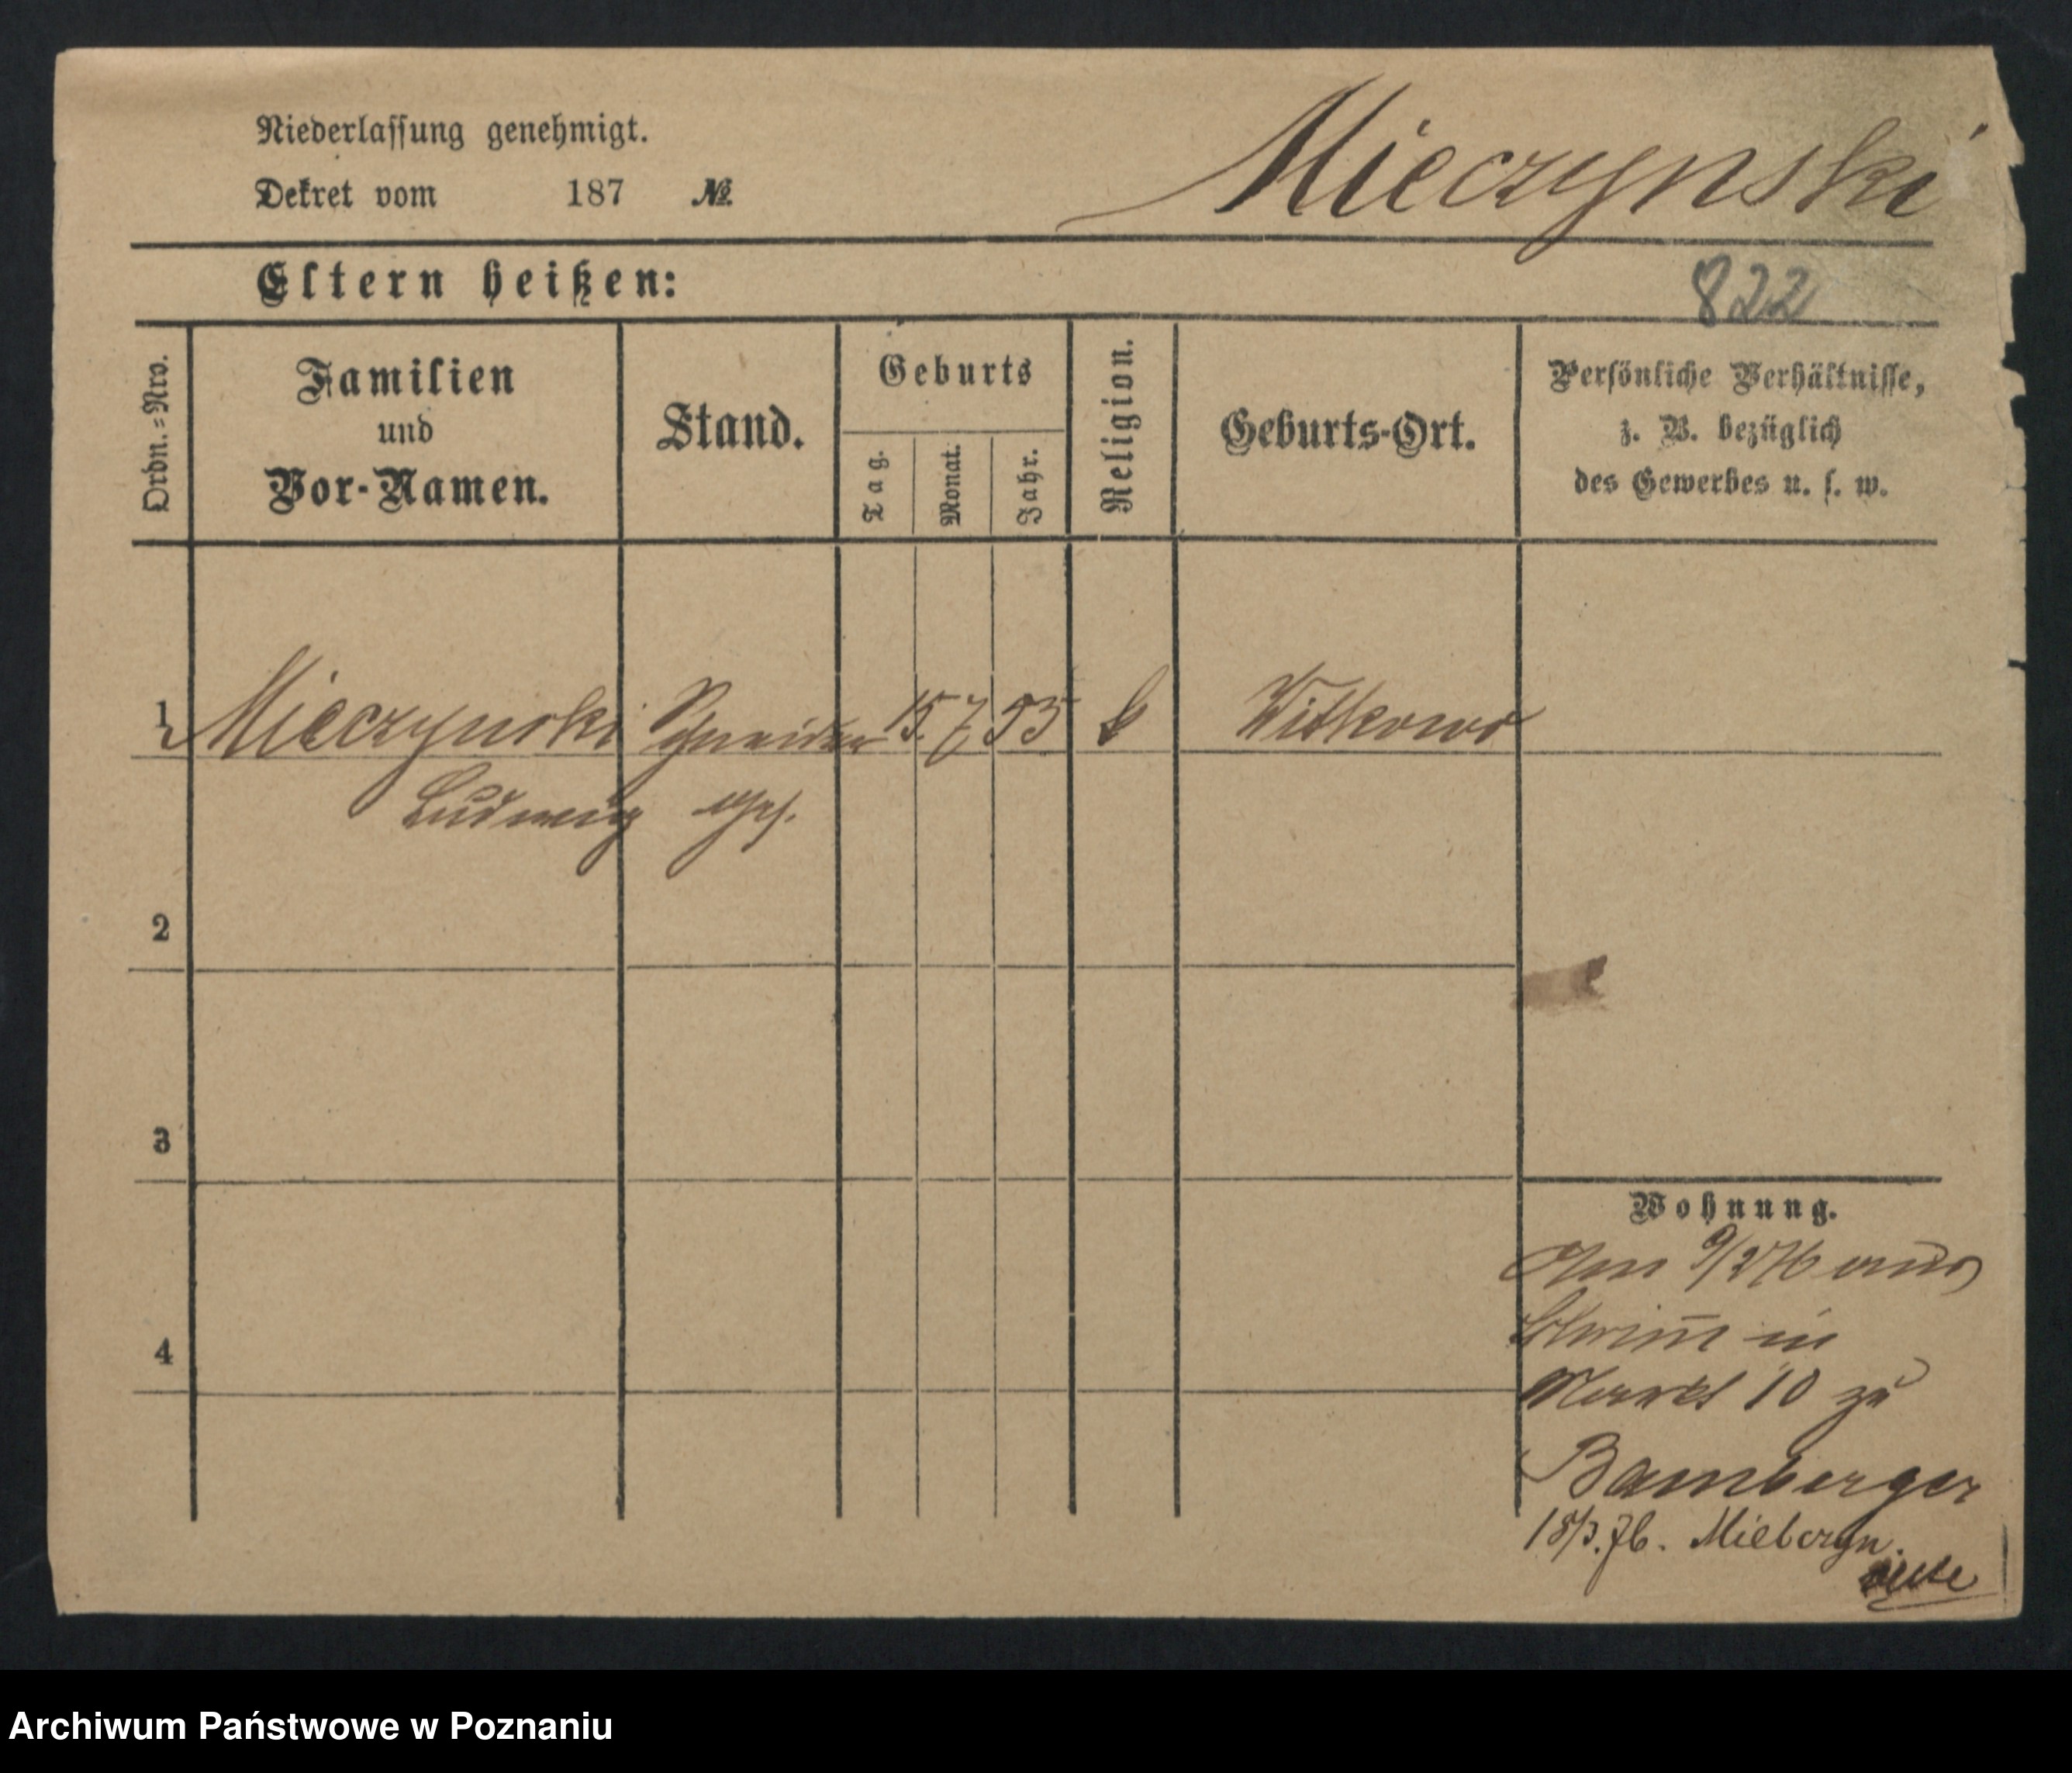 Niederlassung genehmigt.
Dekret vom 187 №
Mieczynski
Eltern heißen:
822
Ordn.=Nro.
Familien
und
Vor-Namen.
Stand.
Geburts
Tag.
Monat.
Jahr.
Religion.
Geburts-Ort.
Persönliche Verhältnisse,
z. B. bezüglich
des Gewerbes u. s. w.
1 Mieczynski Schneider 15. 7 53 k Witkowo
Ludwig
2
3
4
Wohnung.
9/2 76 aus
in
Markt 10 zu
Bamberger
18/3. 76. Mielczyn.
Archiwum Państwowe w Poznaniu